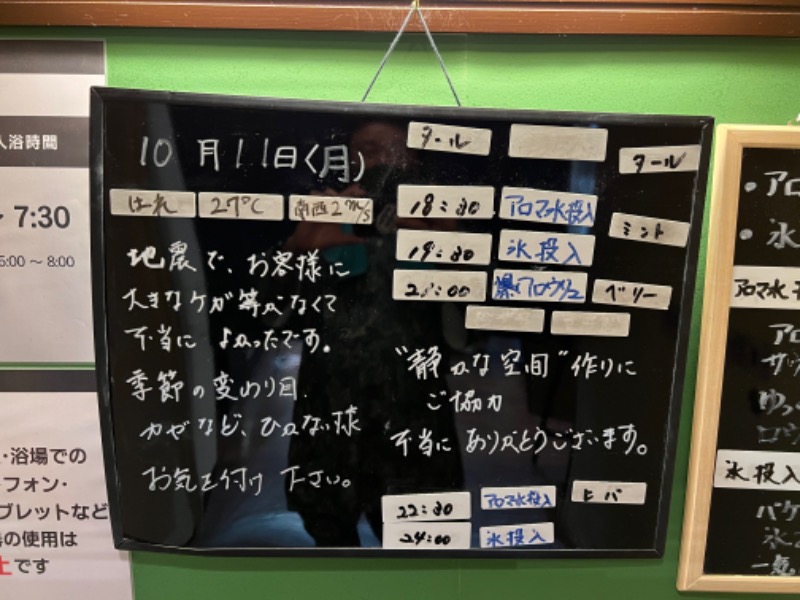 入浴時間
~ 7:30
5:00 ~ 8:00
・浴場での
フォン・
ブレットなど
の使用は
止です
10月11日(月)
はれ 27℃ 南西2m/s
地震で、お客様に
大きなケガ等がなくて
本当に よかったです。
季節の変わり目、
カゼなど、ひかない様
お気を付け 下さい。
タール タール
18:30 アロマ水投入 ミント
19:30 氷投入
21:00 爆アロウリュ ベリー
"静かな空間"作りに
ご協力
本当に ありがとうございます。
22:30 アロマ水投入 ヒバ
24:00 氷投入
・アロ
・氷
アロマ水
アロ
サウ
ゆっ
ロウ
氷投入
バケ
氷
一気